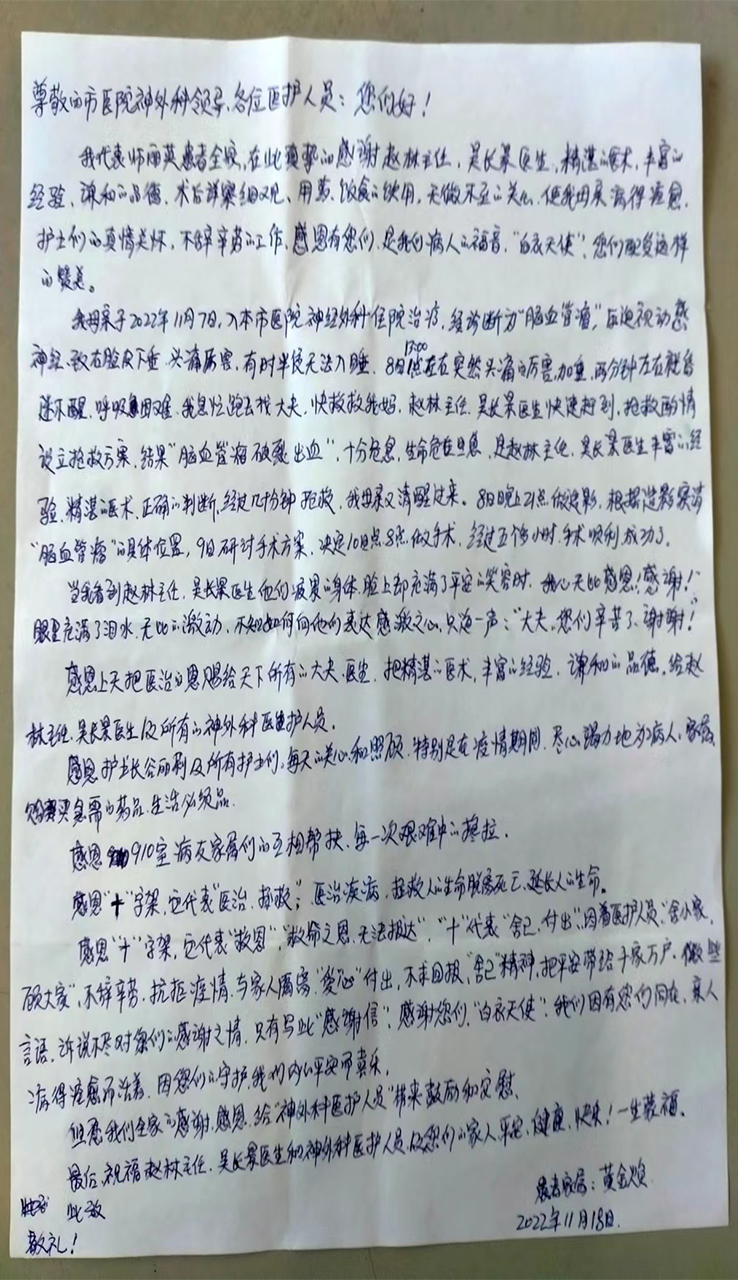 尊敬的市医院神外科领导、各位医护人员：您们好！
我代表师丽英患者全家，在此真挚的感谢赵林主任，吴长景医生，精湛的医术，丰富的
经验，谦和的品德，术后详察细观、用药、饮食的饮用，无微不至的关心，使我母亲病得痊愈，
护士们的真情关怀，不辞辛劳的工作，感恩有您们，是我们病人的福音，"白衣天使"，您们配受这样
的赞美。
我母亲于2022年11月7日，入本市医院神经外科住院治疗，经诊断为"脑血管瘤"，压迫视动感
神经、致右脸皮下垂、头痛厉害，有时半夜无法入睡，8日17:00左右突然头痛的厉害，加重，两分钟左右就昏
迷不醒，呼吸困难，我急忙跑去找大夫，快救救我妈，赵林主任、吴长景医生快速赶到，抢救
设立抢救方案，结果"脑血管瘤破裂出血"，十分危急，生命危在旦夕，是赵林主任，吴长景医生丰富的经
验，精湛的医术，正确的判断，经过几十分钟抢救，我母亲又清醒过来。8日晚上21点做造影，根据造影察清
"脑血管瘤"的具体位置，9日研讨手术方案，决定10日点8点做手术，经过五个多小时，手术顺利成功了。
当我看到赵林主任、吴长景医生他们疲累的身体，脸上却充满了平安的笑容时，我心无比感恩！感谢！
眼里充满了泪水，无比的激动，不知如何向他们表达感激之心，只道一声："大夫，您们辛苦了，谢谢！"
感恩上天把医治的恩赐给天下所有的大夫、医生，把精湛的医术，丰富的经验，谦和的品德，给赵
林主任，吴长景医生及所有的神外科医护人员。
感恩护士长谷丽利及所有护士们，每天的关心和照顾，特别是在疫情期间，尽心竭力地为病人、家属
购买急需的药品、生活必须品。
感恩910室病友家属们的互相帮扶，每一次艰难中的搀拉。
感恩"十"字架，它代表"医治、拯救"；医治疾病，拯救人的生命脱离死亡，延长人的生命。
感恩"十"字架，它代表"救恩"，"救命之恩，无法报达"，"十"代表"舍己，付出"，因着医护人员，"舍小家，
顾大家"，不辞辛劳，抗拒疫情，与家人离离，"爱心"付出，不求回报，"舍己"精神，把平安带给千家万户，
言语，诉说不尽对您们的感谢之情，只有写此"感谢信"，感谢您们，"白衣天使"，我们因有您们同在，亲人
病得痊愈而活着，因您们的守护，我们内心平安而喜乐。
但愿我们全家的感谢，感恩，给"神外科医护人员"带来鼓励和安慰。
最后，祝福赵林主任、吴长景医生和神外科医护人员及您们的家人平安，健康，快乐！一生蒙福。
此致
敬礼！
患者家属：黄金焕
2022年11月18日.